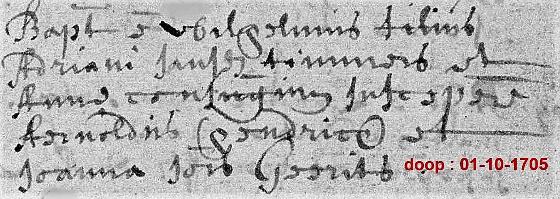 Bapt ē Wilhelmus filius
Adriani Janss timmers et
Anne conjugum suscepere
Aernoldus Hendrics et
Joanna Jois Geerits
doop : 01-10-1705